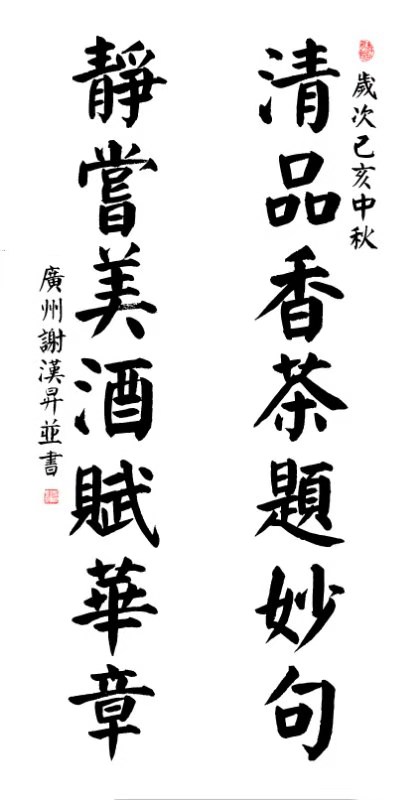 歲次己亥中秋
清品香茶題妙句
靜嘗美酒賦華章
廣州謝漢昇並書